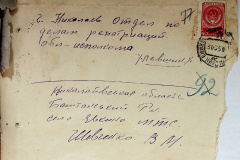 г. Николаев Отдел по
делам репатриации
обл-исполкома
77
92
Николаевская область
Баштанский Р-н
село
МТС
Шевченко В. М.